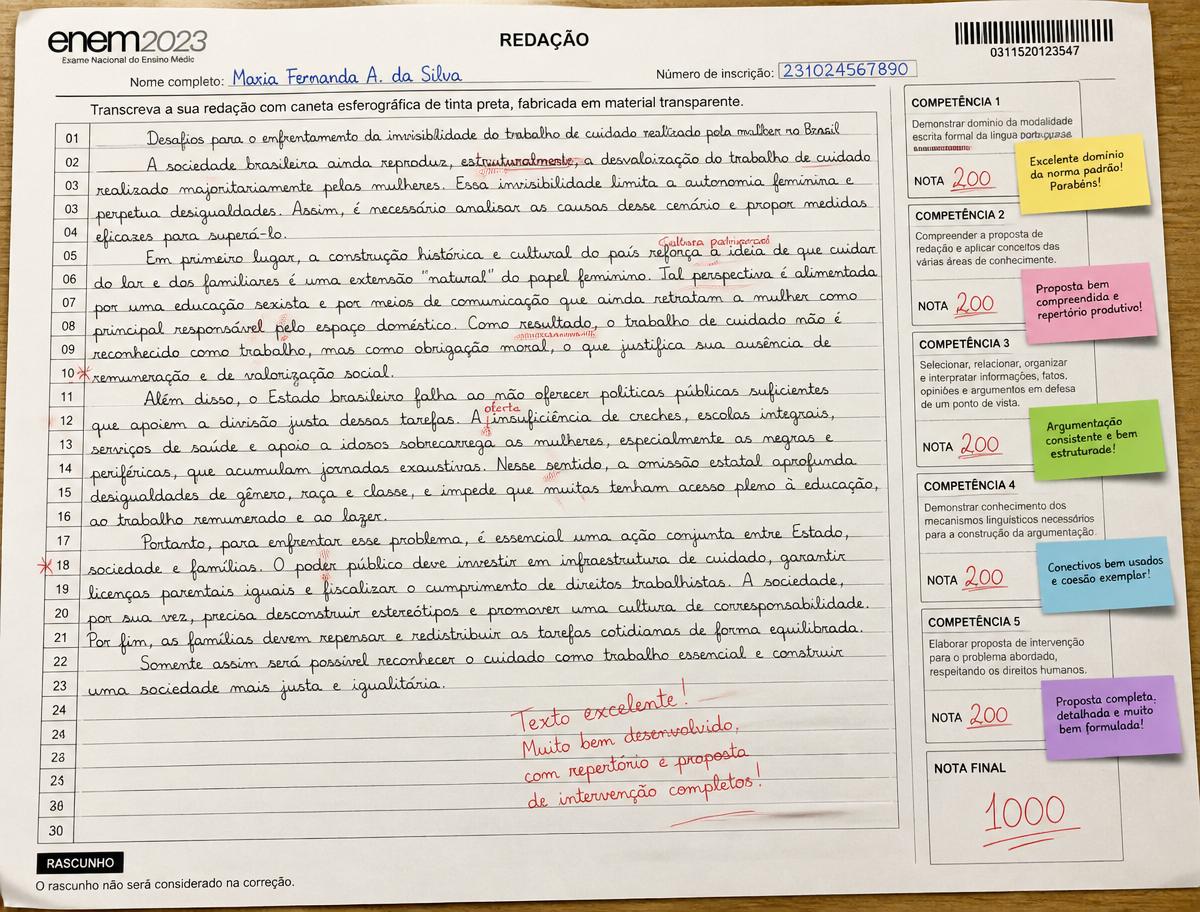 enem2023
Exame Nacional do Ensino Médic
REDAÇÃO
0311520123547
Nome completo: Maria Fernanda A. da Silva
Número de inscrição: 231024567890
Transcreva a sua redação com caneta esferográfica de tinta preta, fabricada em material transparente.
01 Desafios para o enfrentamento da invisiblidade do trabalho de cuidado realizado pela mulher no Brasil
02 A sociedade brasileira ainda reproduz, estruturalmente, a desvaloização do trabalho de cuidado
03 realizado majoritariamente pelas mulheres. Essa invisibilidade limita a autonomia feminina e
03 perpetua desigualdades. Assim, é necessário analisar as causas desse cenário e propor medidas
04 eficazes para superá-lo.
Cultura
05 Em primeiro lugar, a construção histórica e cultural do país reforça a ideia de que cuidar
06 do lar e dos familiares é uma extensão "natural" do papel feminino. Tal perspectiva é alimentada
07 por uma educação sexista e por meios de comunicação que ainda retratam a mulher como
08 principal responsável pelo espaço doméstico. Como resultado, o trabalho de cuidado não é
09 reconhecido como trabalho, mas como obrigação moral, o que justifica sua ausência de
10 remuneração e de valorização social.
11 Além disso, o Estado brasileiro falha ao não oferecer políticas públicas suficientes
oferta
12 que apoiem a divisão justa dessas tarefas. A insuficiência de creches, escolas integrais,
13 serviços de saúde e apoio a idosos sobrecarrega as mulheres, especialmente as negras e
14 periféricas, que acumulam jornadas exaustivas. Nesse sentido, a omissão estatal aprofunda
15 desigualdades de gênero, raça e classe, e impede que muitas tenham acesso pleno à educação,
16 ao trabalho remunerado e ao lazer.
17 Portanto, para enfrentar esse problema, é essencial uma ação conjunta entre Estado,
18 sociedade e famílias. O poder público deve investir em infraestrutura de cuidado, garantir
19 licenças parentais iguais e fiscalizar o cumprimento de direitos trabalhistas. A sociedade,
20 por sua vez, precisa desconstruir estereótipos e promover uma cultura de corresponsabilidade.
21 Por fim, as famílias devem repensar e redistribuir as tarefas cotidianas de forma equilibrada.
22 Somente assim será possível reconhecer o cuidado como trabalho essencial e construir
23 uma sociedade mais justa e igualitária.
24
24
28
25
30
30
Texto excelente!
Muito bem desenvolvido,
com repertório e proposta
de intervenção completos!
RASCUNHO
O rascunho não será considerado na correção.
COMPETÊNCIA 1
Demonstrar domínio da modalidade
escrita formal da língua portuguesa
NOTA 200
Excelente domínio
da norma padrão!
Parabéns!
COMPETÊNCIA 2
Compreender a proposta de
redação e aplicar conceitos das
várias áreas de conhecimente.
NOTA 200
Proposta bem
compreendida e
repertório produtivo!
COMPETÊNCIA 3
Selecionar, relacionar, organizar
e interpretar informações, fatos,
opiniões e argumentos em defesa
de um ponto de vista.
NOTA 200
Argumentação
consistente e bem
estruturade!
COMPETÊNCIA 4
Demonstrar conhecimento dos
mecanismos linguísticos necessários
para a construção da argumentação.
NOTA 200
Conectivos bem usados
e coesão exemplar!
COMPETÊNCIA 5
Elaborar proposta de intervenção
para o problema abordado,
respeitando os direitos humanos.
NOTA 200
Proposta completa,
detalhada e muito
bem formulada!
NOTA FINAL
1000